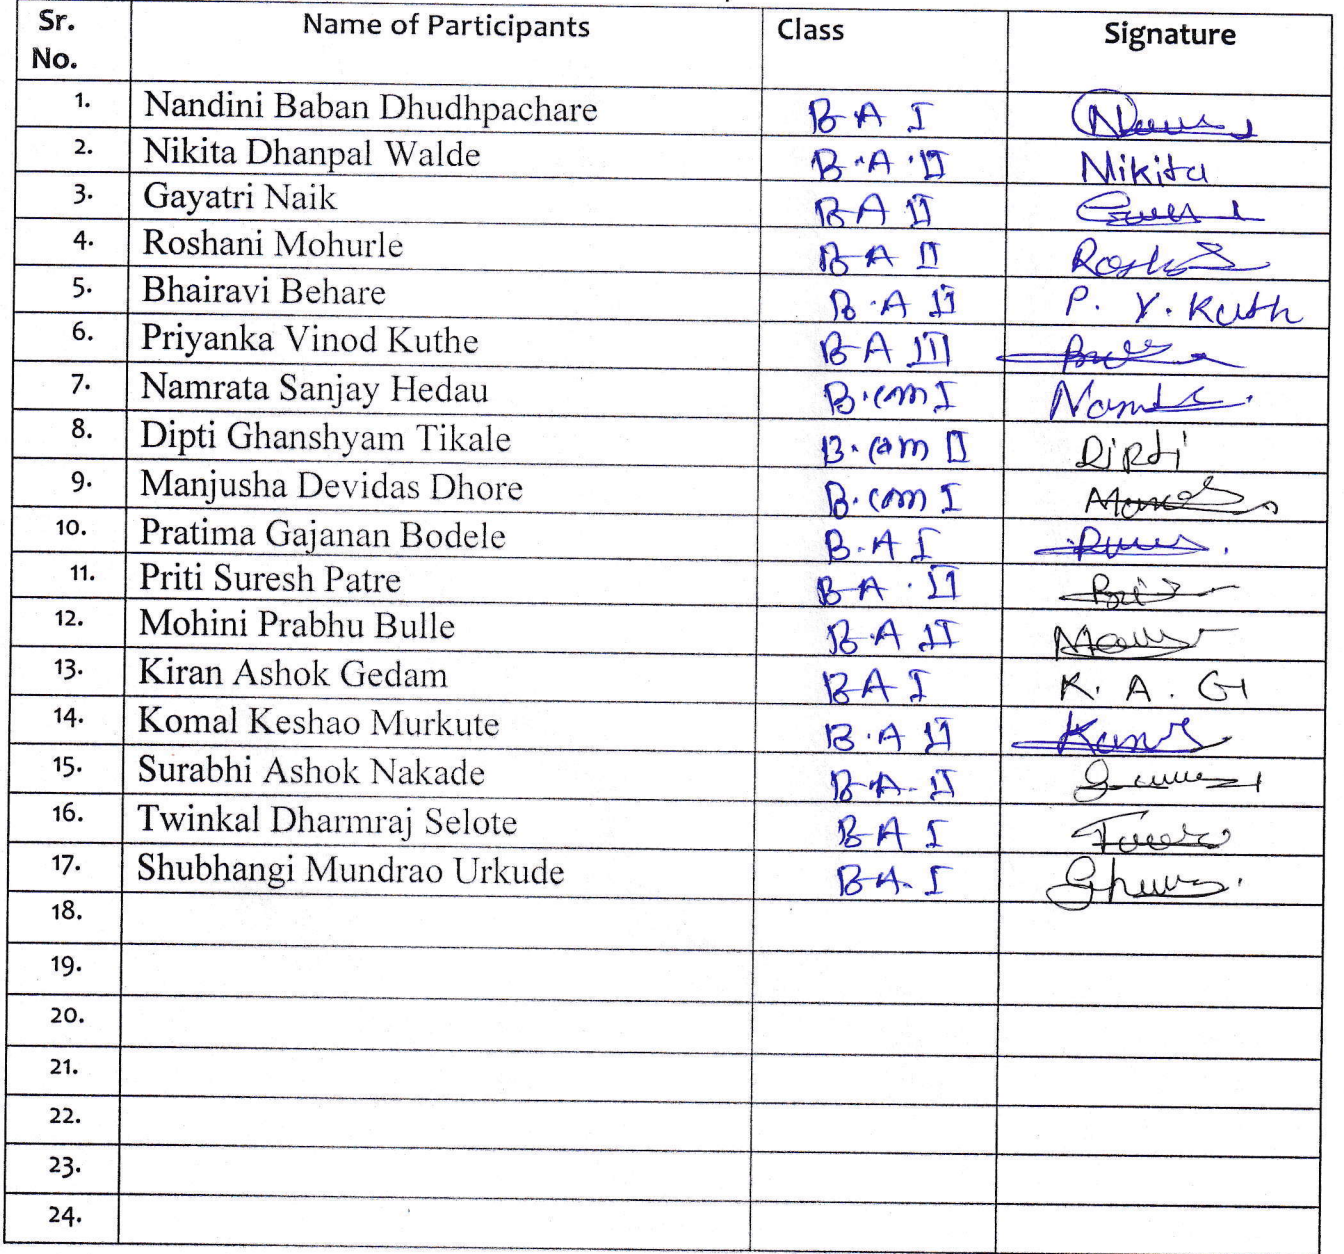 Sr. No. Name of Participants Class Signature
1. Nandini Baban Dhudhpachare B A I
2. Nikita Dhanpal Walde B.A.II Nikita
3. Gayatri Naik B A II
4. Roshani Mohurle B A II
5. Bhairavi Behare B.A II P. V. Kuth
6. Priyanka Vinod Kuthe B A III
7. Namrata Sanjay Hedau B.com I
8. Dipti Ghanshyam Tikale B.com II Dipti
9. Manjusha Devidas Dhore B.com I
10. Pratima Gajanan Bodele B.A I
11. Priti Suresh Patre B A . II
12. Mohini Prabhu Bulle B.A II
13. Kiran Ashok Gedam B A I K. A. G
14. Komal Keshao Murkute B.A II
15. Surabhi Ashok Nakade B A. II
16. Twinkal Dharmraj Selote B A I
17. Shubhangi Mundrao Urkude B A. I
18.
19.
20.
21.
22.
23.
24.